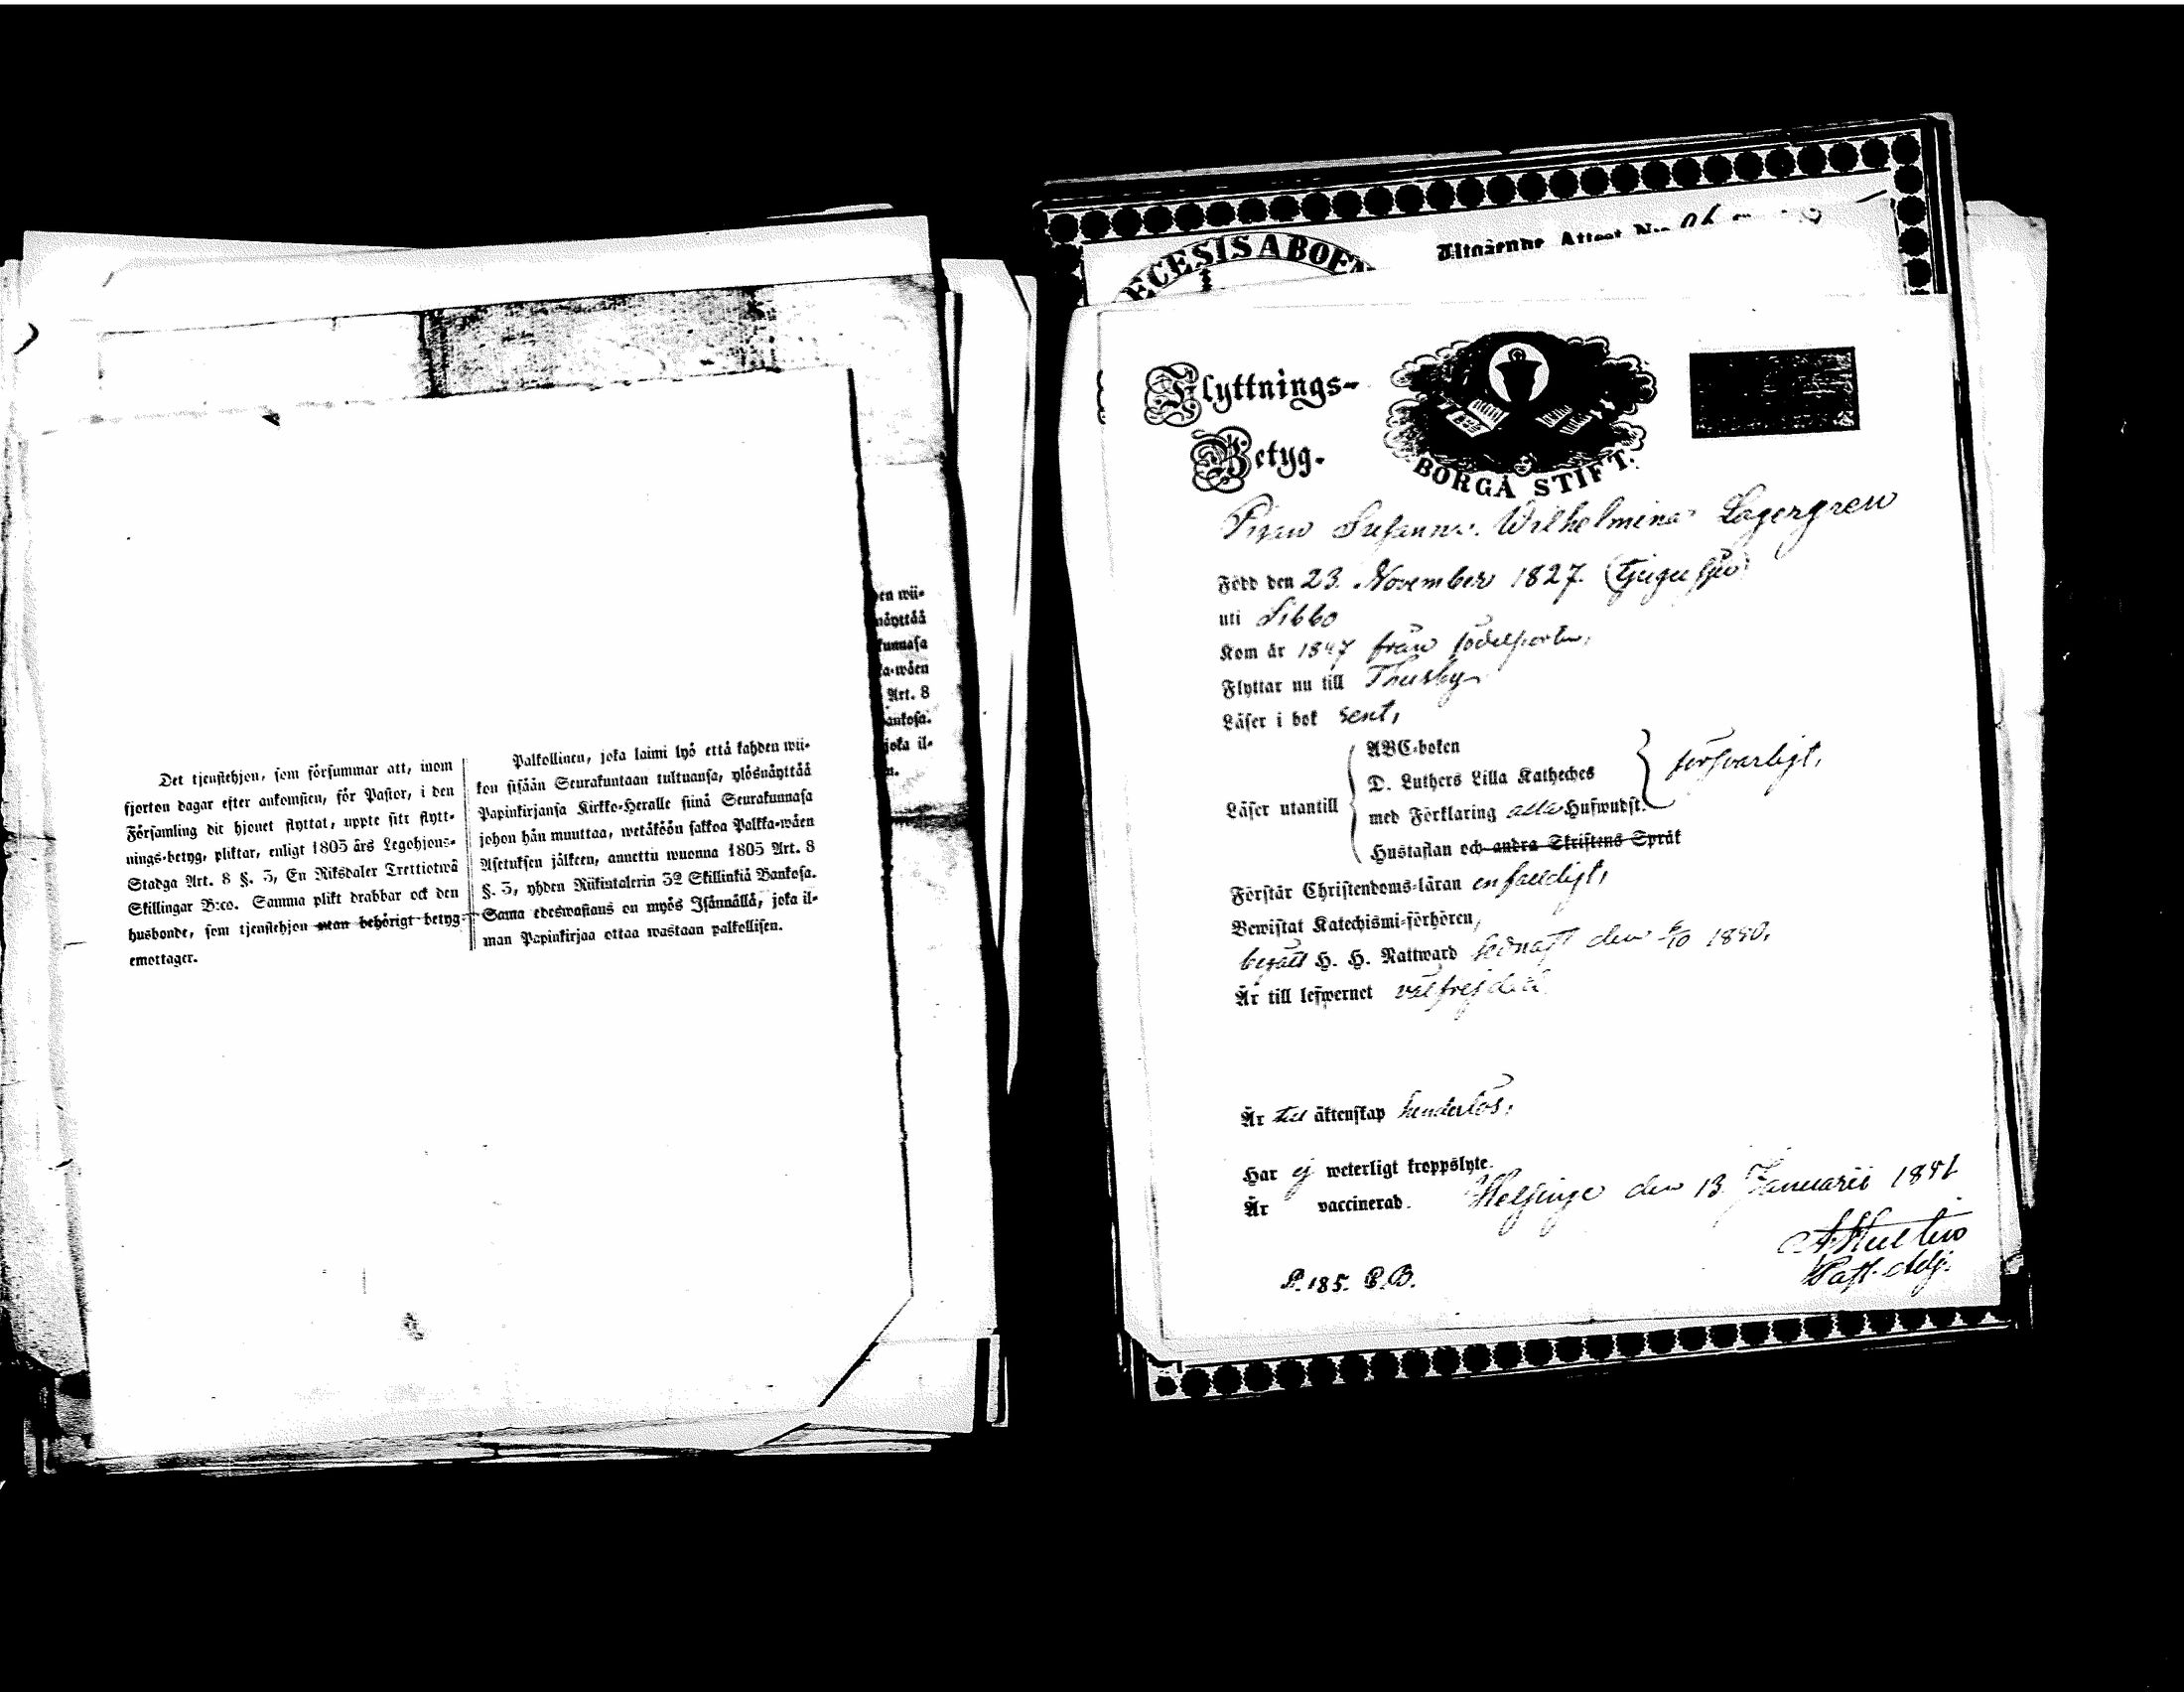 Det tjenstehjon, som försummar att, inom
fjorton dagar efter ankomsten, för Pastor, i den
Församling dit hjonet flyttat, uppte sitt flytt-
nings-betyg, pliktar, enligt 1805 års Legohjons-
Stadga Art. 8 §. 3, En Riksdaler Trettiotwå
Skillingar B:co. Samma plikt drabbar ock den
husbonde, som tjenstehjon utan behörigt betyg
emottager.
Palkollinen, joka laimi lyö että kahden wii-
kon sisään Seurakuntaan tultuansa, ylösnäyttää
Papinkirjansa Kirkko-Heralle siinä Seurakunnasa
johon hän muuttaa, wetäköön sakkoa Palkka-wäen
Asetuksen jälkeen, annettu wuonna 1805 Art. 8
§. 3, yhden Riikintalerin 32 Skillinkiä Bankosa.
Sama edeswastaus on myös Isännällä, joka il-
man Papinkirjaa ottaa wastaan palkollisen.
en wii-
näyttää
kunnasa
ka-wäen
Art. 8
ankosa.
joka il-
n.
ECESIS ABOEN
Utgående Attest N:o
Flyttnings-
Betyg.
BORGÅ STIFT.
Pigan Susanna Wilhelmina Lagergren
Född den 23. November 1827. (tjugu sju)
uti Sibbo
Kom år 1847 från födelseorten,
Flyttar nu till Thusby
Läser i bok rent,
Läser utantill
ABC-boken
D. Luthers Lilla Katheches
med Förklaring alla Hufwudst.
Hustaflan och andra Skriftens Språk
försvarligt,
Förstår Christendoms-läran enfaldigt,
Bewistat Katechismi-förhören,
begått H. H. Nattward sednast den
Är till lefwernet välfrejdad
Är till äktenskap hinderlös,
Har ej weterligt kroppslyte.
Är vaccinerad.
Helsinge den 13 Januarii
Past. Adj.
P. 185. C.B.